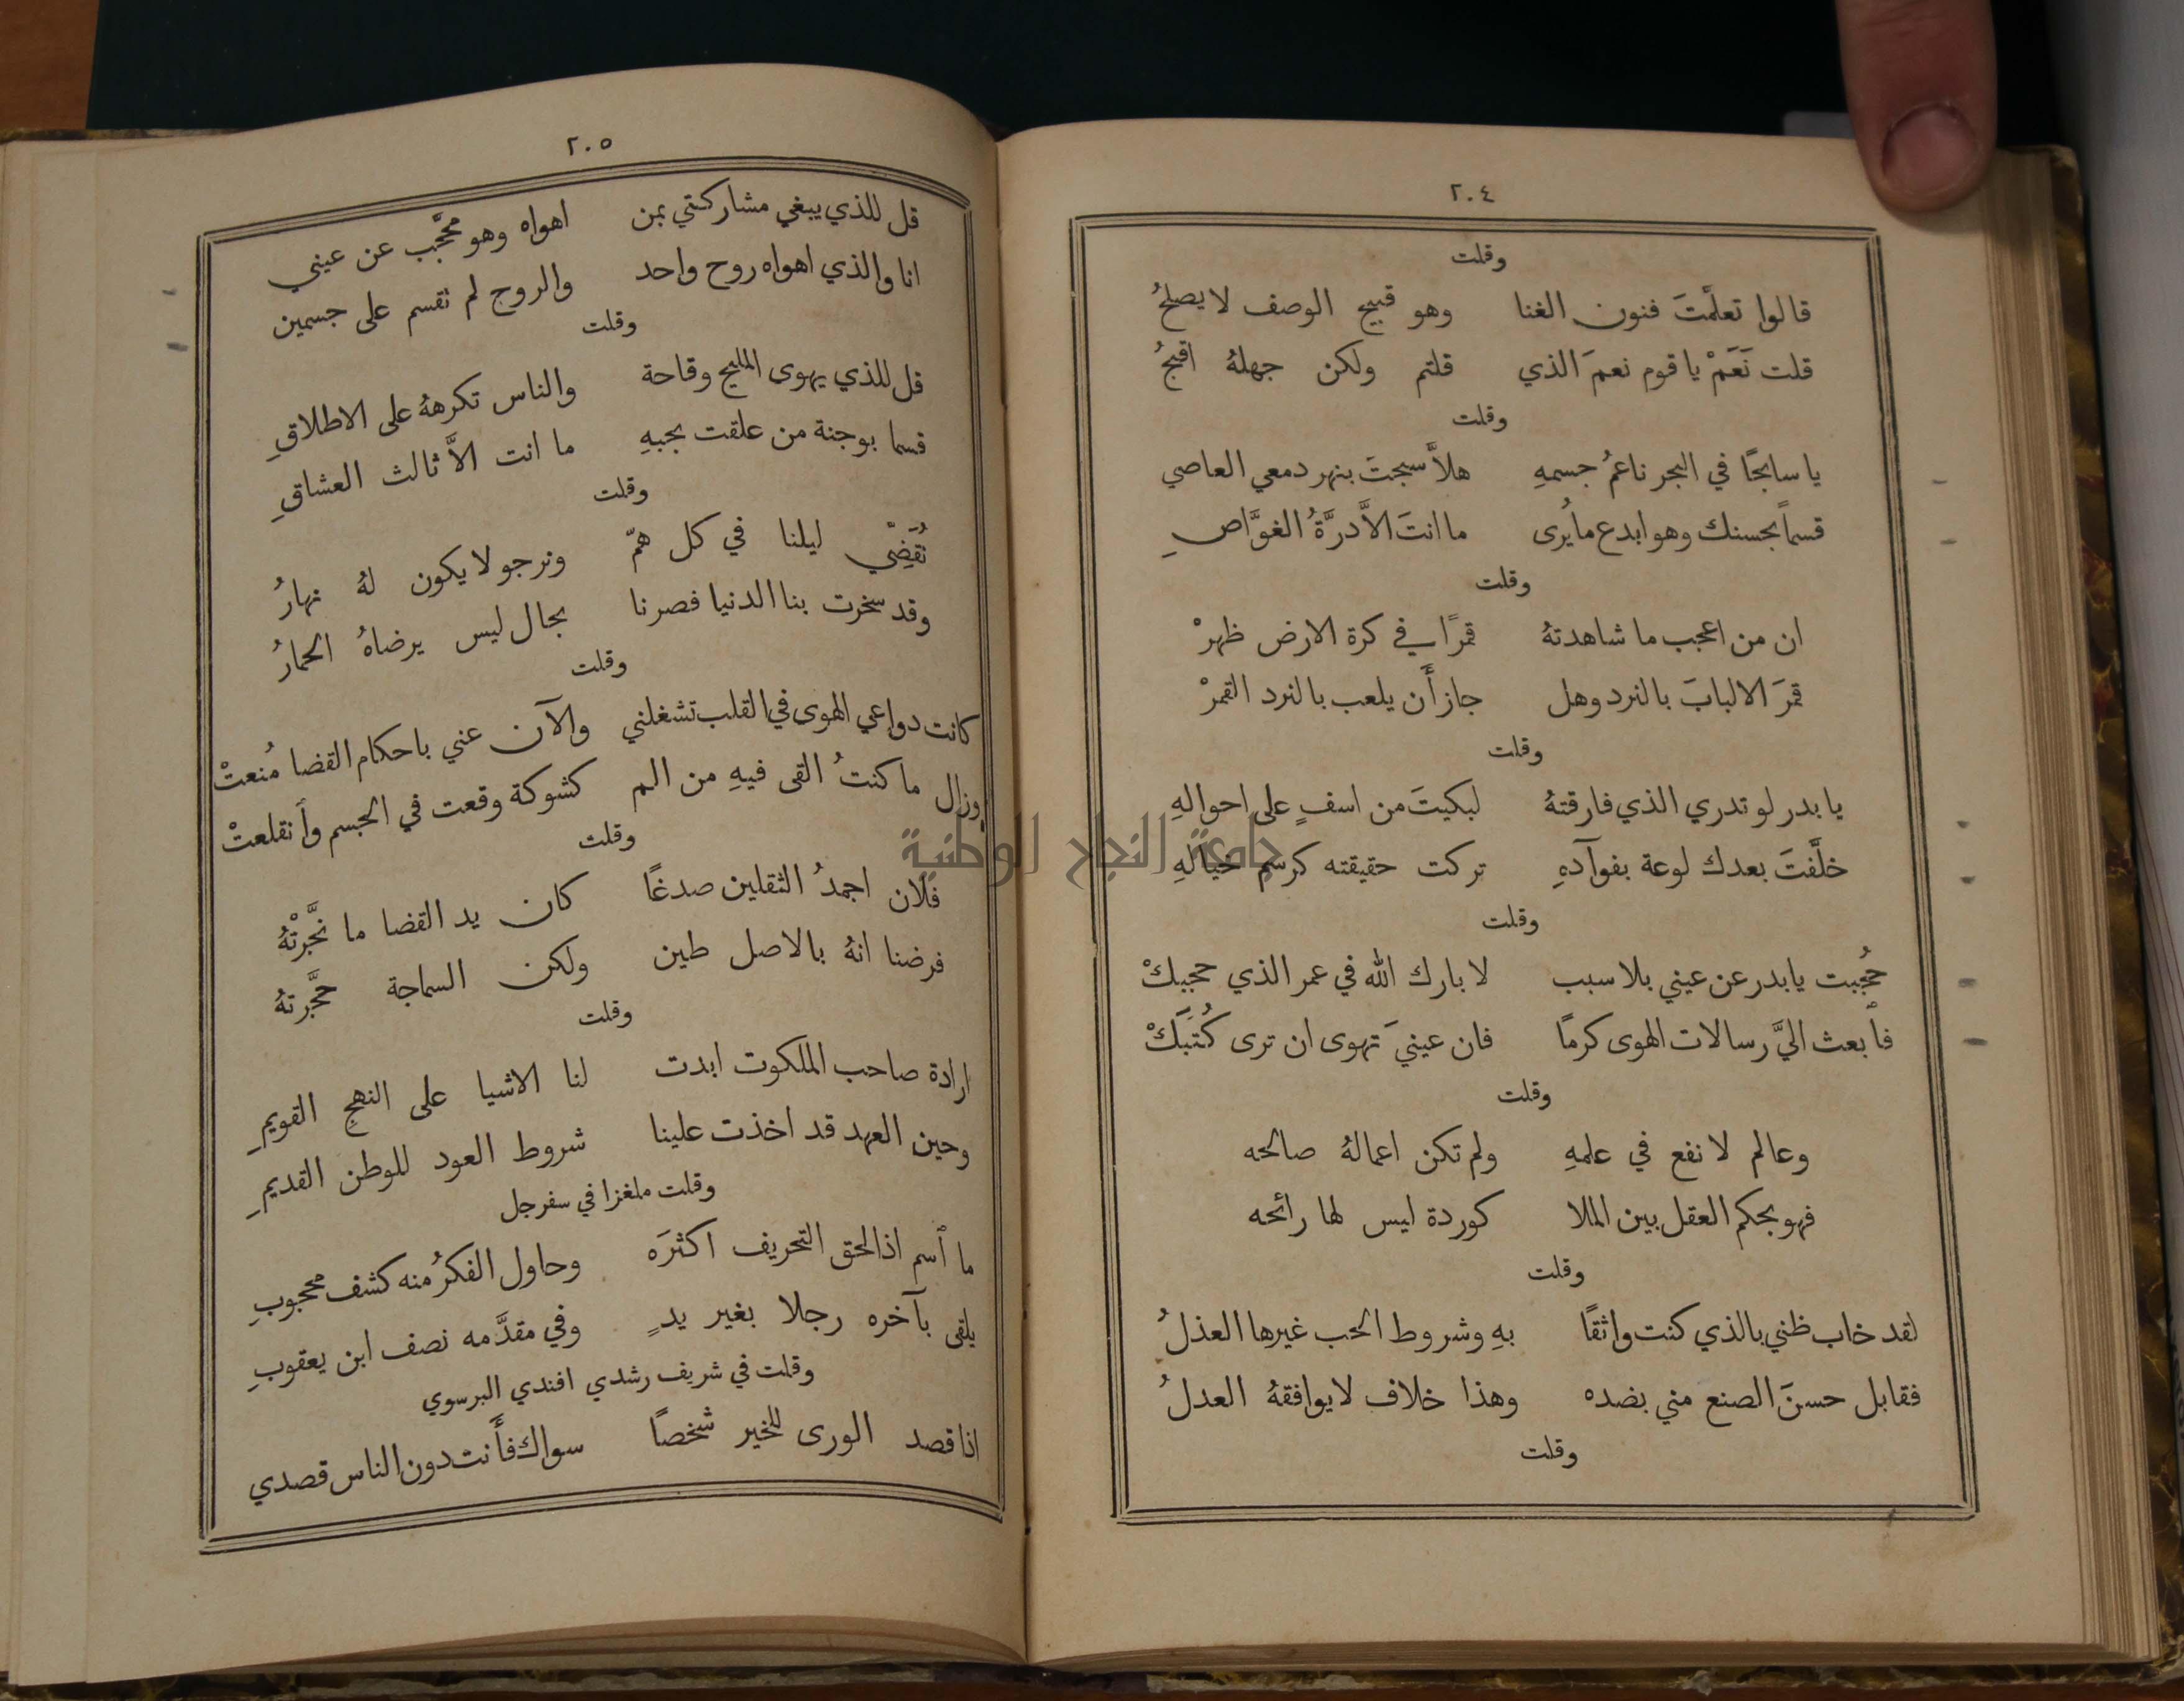 ٢٠٤
وقلت
قالوا تعلَّمتَ فنون الغنا وهو قبيح الوصف لا يصلحُ
قلت نَعَمْ يا قوم نعمَ الذي قلتم ولكن جهلهُ اقبحُ
وقلت
يا سابحًا في البحر ناعمُ جسمهِ هلاَّ سبحتَ بنهر دمعي العاصي
قسماً بحسنك وهو ابدع ما يُرى ما انتَ الاَّ درَّةُ الغوَّاصِ
وقلت
ان من اعجب ما شاهدتهُ قمرًا في كرة الارض ظهرْ
قمرَ الالبابَ بالنرد وهل جاز أَن يلعب بالنرد القمرْ
وقلت
يا بدر لو تدري الذي فارقتهُ لبكيتَ من اسفٍ على احوالهِ
خلَّفتَ بعدك لوعة بفوآدهِ تركت حقيقته كرسم خيالهِ
وقلت
حُجبت يا بدر عن عيني بلا سبب لا بارك الله في عمر الذي حجبكْ
فأبعث اليَّ رسالات الهوى كرمًا فان عينيَ تهوى ان ترى كُتبَكْ
وقلت
وعالم لا نفع في علمهِ ولم تكن اعمالهُ صالحه
فهو بحكم العقل بين الملا كوردة ليس لها رائحه
وقلت
لقد خاب ظني بالذي كنت واثقًا بهِ وشروط الحب غيرها العذلُ
فقابل حسنَ الصنع مني بضده وهذا خلاف لا يوافقهُ العدلُ
وقلت
٢٠٥
قل للذي يبغي مشاركتي بمن اهواه وهو محجَّب عن عيني
انا والذي اهواه روح واحد والروح لم تقسم على جسمين
وقلت
قل للذي يهوى المليح وقاحة والناس تكرههُ على الاطلاقِ
قسما بوجنة من علقت بحبهِ ما انت الاَّ ثالث العشاقِ
وقلت
نُقَضِّي ليلنا في كل همّ ونرجو لا يكون لهُ نهارُ
وقد سخرت بنا الدنيا فصرنا بحال ليس يرضاهُ الحمارُ
وقلت
كانت دواعي الهوى في القلب تشغلني والآن عني باحكام القضا مُنعتْ
وزال ما كنتُ القى فيهِ من الم كشوكة وقعت في الجسم وأنقلعتْ
وقلت
فلان اجمدُ الثقلين صدغًا كان يد القضا ما نجَّرتْهُ
فرضنا انهُ بالاصل طين ولكن السماجة حجَّرتهُ
وقلت
ارادة صاحب الملكوت ابدت لنا الاشيا على النهج القويمِ
وحين العهد قد اخذت علينا شروط العود للوطن القديمِ
وقلت ملغزا في سفرجل
ما أسم اذا لحق التحريف اكثرَه وحاول الفكرُ منه كشف محجوبِ
يلقى بآخره رجلا بغير يدٍ وفي مقدَّمه نصف ابن يعقوبِ
وقلت في شريف رشدي افندي البرسوي
اذا قصد الورى للخير شخصًا سواك فأَنت دون الناس قصدي
جامعة النجاح الوطنية